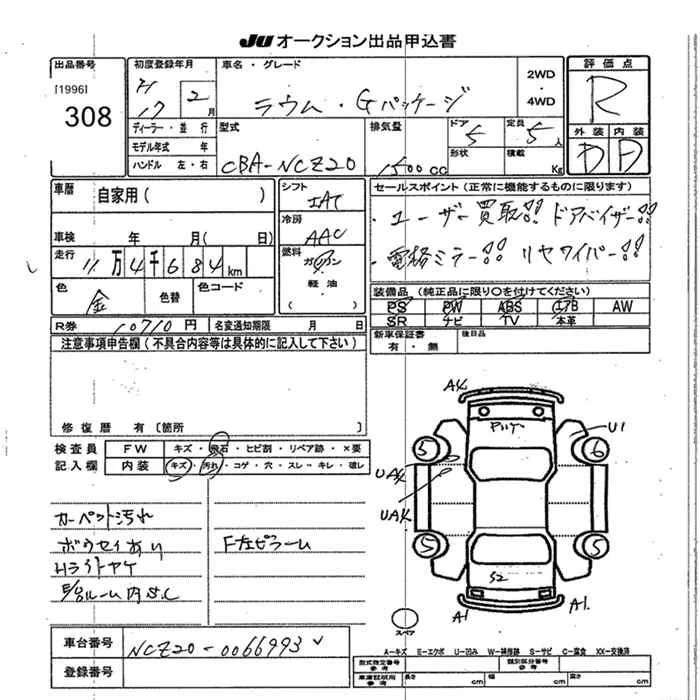 JU オークション出品申込書
出品番号
[1996]
308
初度登録年月
H 17 2 月
車名・グレード
ラウム・Gパッケージ
2WD
・
4WD
評価点
R
外装 内装
D D
ディーラー・並行
モデル年式 年
ハンドル 左・右
型式
CBA-NCZ20
排気量
1500 cc
ドア
5
形状
定員
5 人
積載
Kg
車歴
自家用( )
シフト
IAT
冷房
AAC
燃料
ガソリン
軽油
( )
セールスポイント(正常に機能するものに限ります)
・ユーザー買取!! ドアバイザー!!
・電格ミラー!! リヤワイパー!!
車検 年 月( 日)
走行
11万4千684km
色
金
色替
色コード
装備品(純正品に限り○を付けてください)
PS PW ABS エアB AW
SR ナビ TV 本革
R券 10710円
名変通知期限 月 日
新車保証書
有・無
後日品
注意事項申告欄(不具合内容等は具体的に記入して下さい)
修復歴 有〔箇所 〕
検査員
記入欄
FW キズ・飛石・ヒビ割・リペア跡・×要
内装 キズ・汚れ・コゲ・穴・スレ・キレ・破レ
カーペット汚れ
ボウセイあり
F左ピラーム
Hライトヤケ
A4
U1
5
6
UA4
UA4
5
5
S2
A1
A1.
スペア
車台番号
NCZ20-0066993
登録番号
A-キズ E-エクボ U-凹み W-補修跡 S-サビ C-腐食 XX-交換済
型式指定番号
参考
類別区分番号
参考
車庫証明用
参考
長さ cm
幅 cm
高さ cm